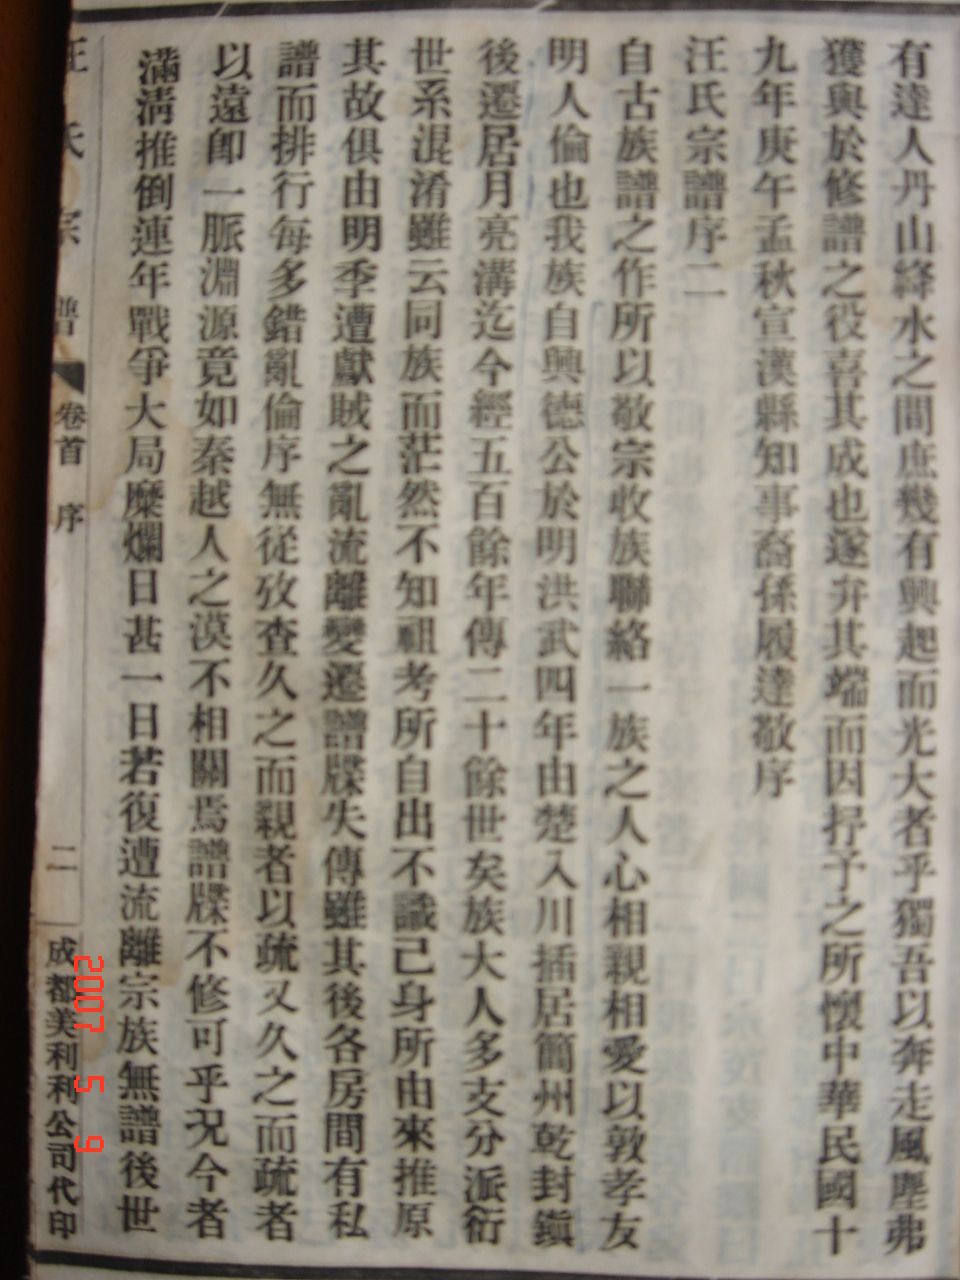 有達人丹山絳水之間庶幾有興起而光大者乎獨吾以奔走風塵弗
獲與於修譜之役喜其成也遂弁其端而因抒予之所懷中華民國十
九年庚午孟秋宣漢縣知事裔孫履達敬序
汪氏宗譜序二
自古族譜之作所以敬宗收族聯絡一族之人心相親相愛以敦孝友
明人倫也我族自興德公於明洪武四年由楚入川插居簡州乾封鎮
後遷居月亮溝迄今經五百餘年傳二十餘世矣族大人多支分派衍
世系混淆雖云同族而茫然不知祖考所自出不識己身所由來推原
其故俱由明季遭獻賊之亂流離變遷譜牒失傳雖其後各房間有私
譜而排行每多錯亂倫序無從攷查久之而親者以疏又久之而疏者
以遠卽一脈淵源竟如秦越人之漠不相關焉譜牒不修可乎況今者
滿淸推倒連年戰爭大局糜爛日甚一日若復遭流離宗族無譜後世
汪氏宗譜 卷首 序 二 成都美利利公司代印
2007 5 9